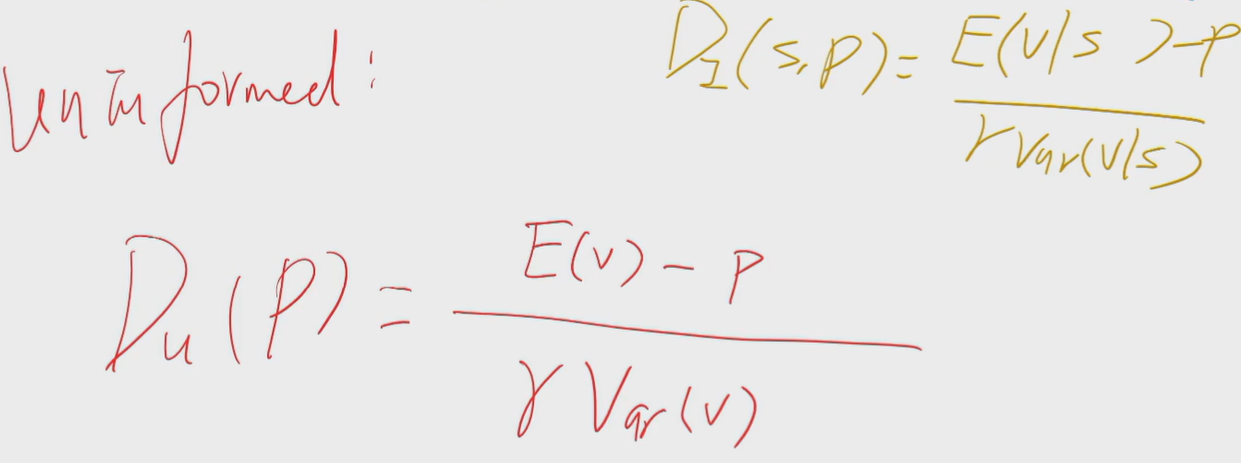 Uninformed:
D_I(s,p) = \frac{E(v|s) - p}{γ Var(v|s)}
D_u(p) = \frac{E(v) - p}{γ Var(v)}